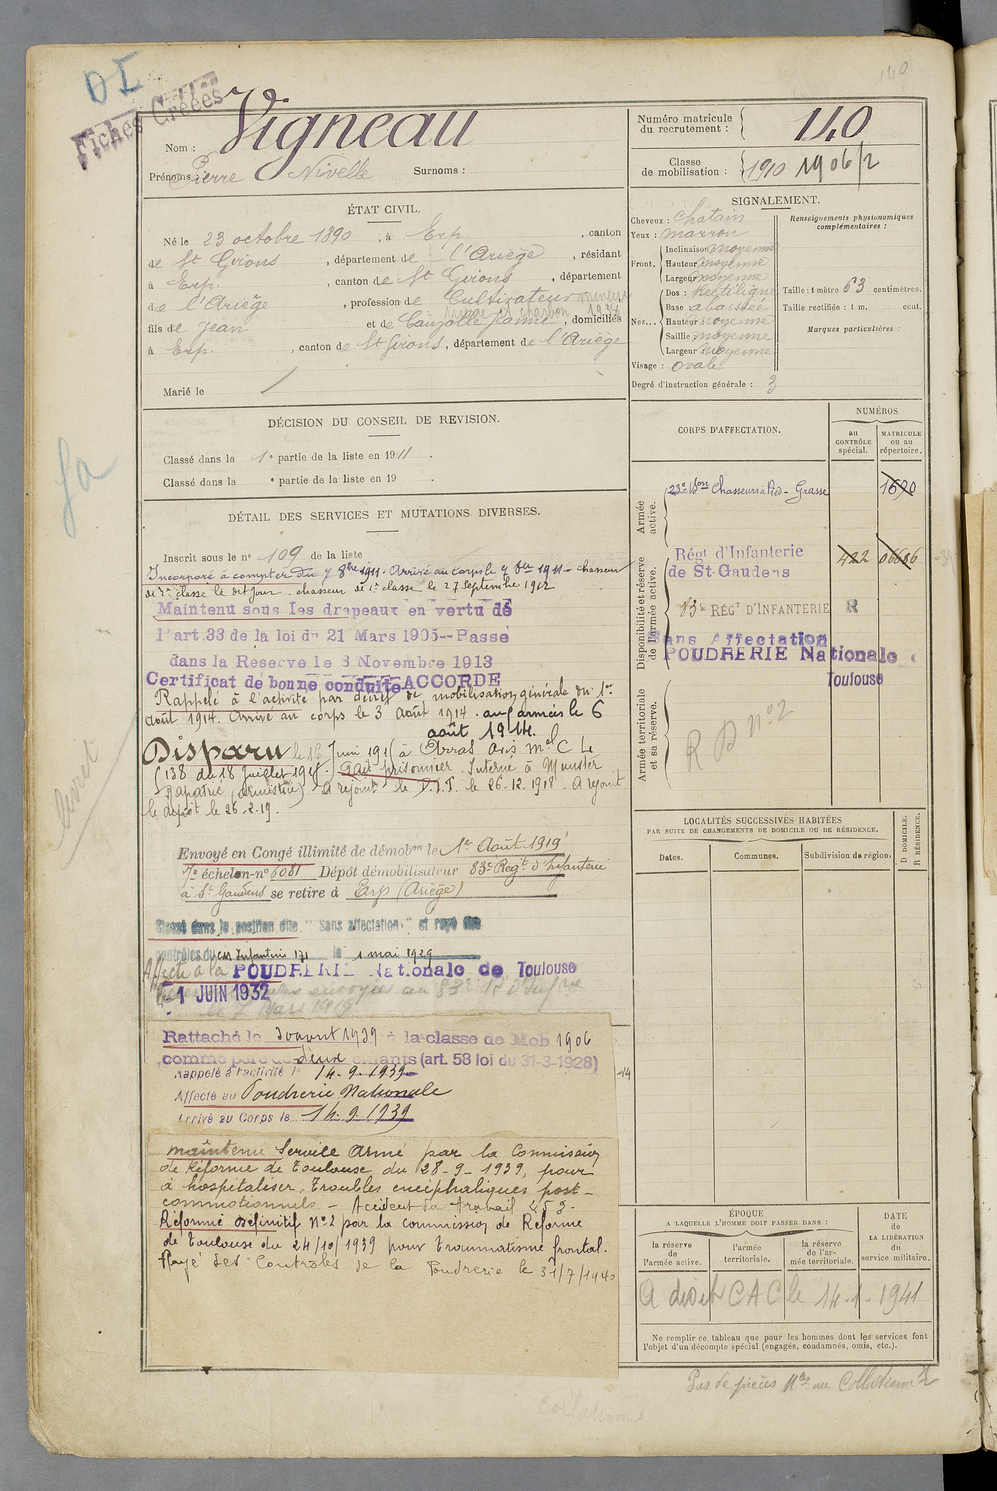 140
DI
Fiches Créées
Nom : Vigneau
Prénoms : Pierre Nivelle Surnoms :
Numéro matricule du recrutement : 140
Classe de mobilisation : 1910 1906/2
ÉTAT CIVIL.
Né le 23 octobre 1890, à Erp, canton
de St Girons, département de l'Ariège, résidant
à Erp, canton de St Girons, département
de l'Ariège, profession de Cultivateur
fils de Jean et de Jeanne, domiciliés
à Erp, canton de St Girons, département de l'Ariège
Marié le /
SIGNALEMENT.
Cheveux : chatain
Yeux : marron
Front. Inclinaison moyenne
Hauteur moyenne
Largeur moyenne
Nez... Dos : Rectiligne
Base abaissée
Hauteur moyenne
Saillie moyenne
Largeur moyenne
Visage : ovale
Degré d'instruction générale : 3
Renseignements physionomiques complémentaires :
Taille : 1 mètre 63 centimètres.
Taille rectifiée : 1 m. cent.
Marques particulières :
DÉCISION DU CONSEIL DE REVISION.
Classé dans la 1e partie de la liste en 1911.
Classé dans la e partie de la liste en 19 .
CORPS D'AFFECTATION.
NUMÉROS
au CONTRÔLE spécial.
MATRICULE ou au répertoire.
Armée active.
23e Bon Chasseurs à Pied - Grasse 1690
Disponibilité et réserve de l'armée active.
Régt d'Infanterie de St-Gaudens 422 06686
83e RÉGT D'INFANTERIE R
Sans Affectation
POUDRERIE Nationale
Toulouse
Armée territoriale et sa réserve.
R D no 2
DÉTAIL DES SERVICES ET MUTATIONS DIVERSES.
Inscrit sous le no 109 de la liste
Incorporé à compter du 7 8bre 1911. Arrivé au corps le 9 8bre 1911 - chasseur
de 2e classe le dit jour - chasseur de 1e classe le 27 septembre 1912
Maintenu sous les drapeaux en vertu de
l'art.33 de la loi du 21 Mars 1905--Passé
dans la Reserve le 8 Novembre 1913
Certificat de bonne conduite ACCORDÉ
Rappelé à l'activité par décret de mobilisation générale du 1er
août 1914. Arrivé au corps le 3 août 1914. aux armées le 6
août 1914.
Disparu le 16 Juin 1915 à Arras avis mel C L
(138 du 18 Juillet 1915.) Fait prisonnier. Interné à Munster
Rapatrié (armistice) A rejoint le D.I.T. le 26.12.1918. A rejoint
le dépôt le 26-2-19.
Envoyé en Congé illimité de démobon le 1er Août 1919
échelon - no 6081 Dépôt démobilisateur 83e Régt d'Infanterie
à St Gaudens se retire à Erp (Ariège)
Classé dans la position dite "Sans affectation" et rayé des
contrôles du CM Infanterie 171 le 1 mai 1929
Affecté à la POUDRERIE Nationale de Toulouse
le 1 JUIN 1932
Rattaché le 3 avril 1939 à la classe de Mob 1906
comme père de deux enfants (art. 58 loi du 31-3-1928)
Rappelé à l'activité le 14-9-1939
Affecté au Poudrerie Nationale
Arrivé au Corps le 14.9.1939
maintenu Service Armé par la Commission
de Réforme de Toulouse du 28-9-1939, pour
à hospitaliser. Troubles encéphaliques post-
commotionnels - Accident du Travail 453-
Réformé Définitif no 2 par la commission de Réforme
de Toulouse du 24/10/1939 pour Traumatisme frontal.
Rayé des Contrôles de la Poudrerie le 31/7/1940
LOCALITÉS SUCCESSIVES HABITÉES
PAR SUITE DE CHANGEMENTS DE DOMICILE OU DE RÉSIDENCE.
Dates. Communes. Subdivision de région.
D DOMICILE. R RÉSIDENCE.
14
ÉPOQUE
A LAQUELLE L'HOMME DOIT PASSER DANS :
la réserve de l'armée active.
l'armée territoriale.
la réserve de l'armée territoriale.
DATE de LA LIBÉRATION du service militaire.
A droit CAC le 14-1-1941
Ne remplir ce tableau que pour les hommes dont les services font
l'objet d'un décompte spécial (engagés, condamnés, omis, etc.).
Pas de pièces
Collationné